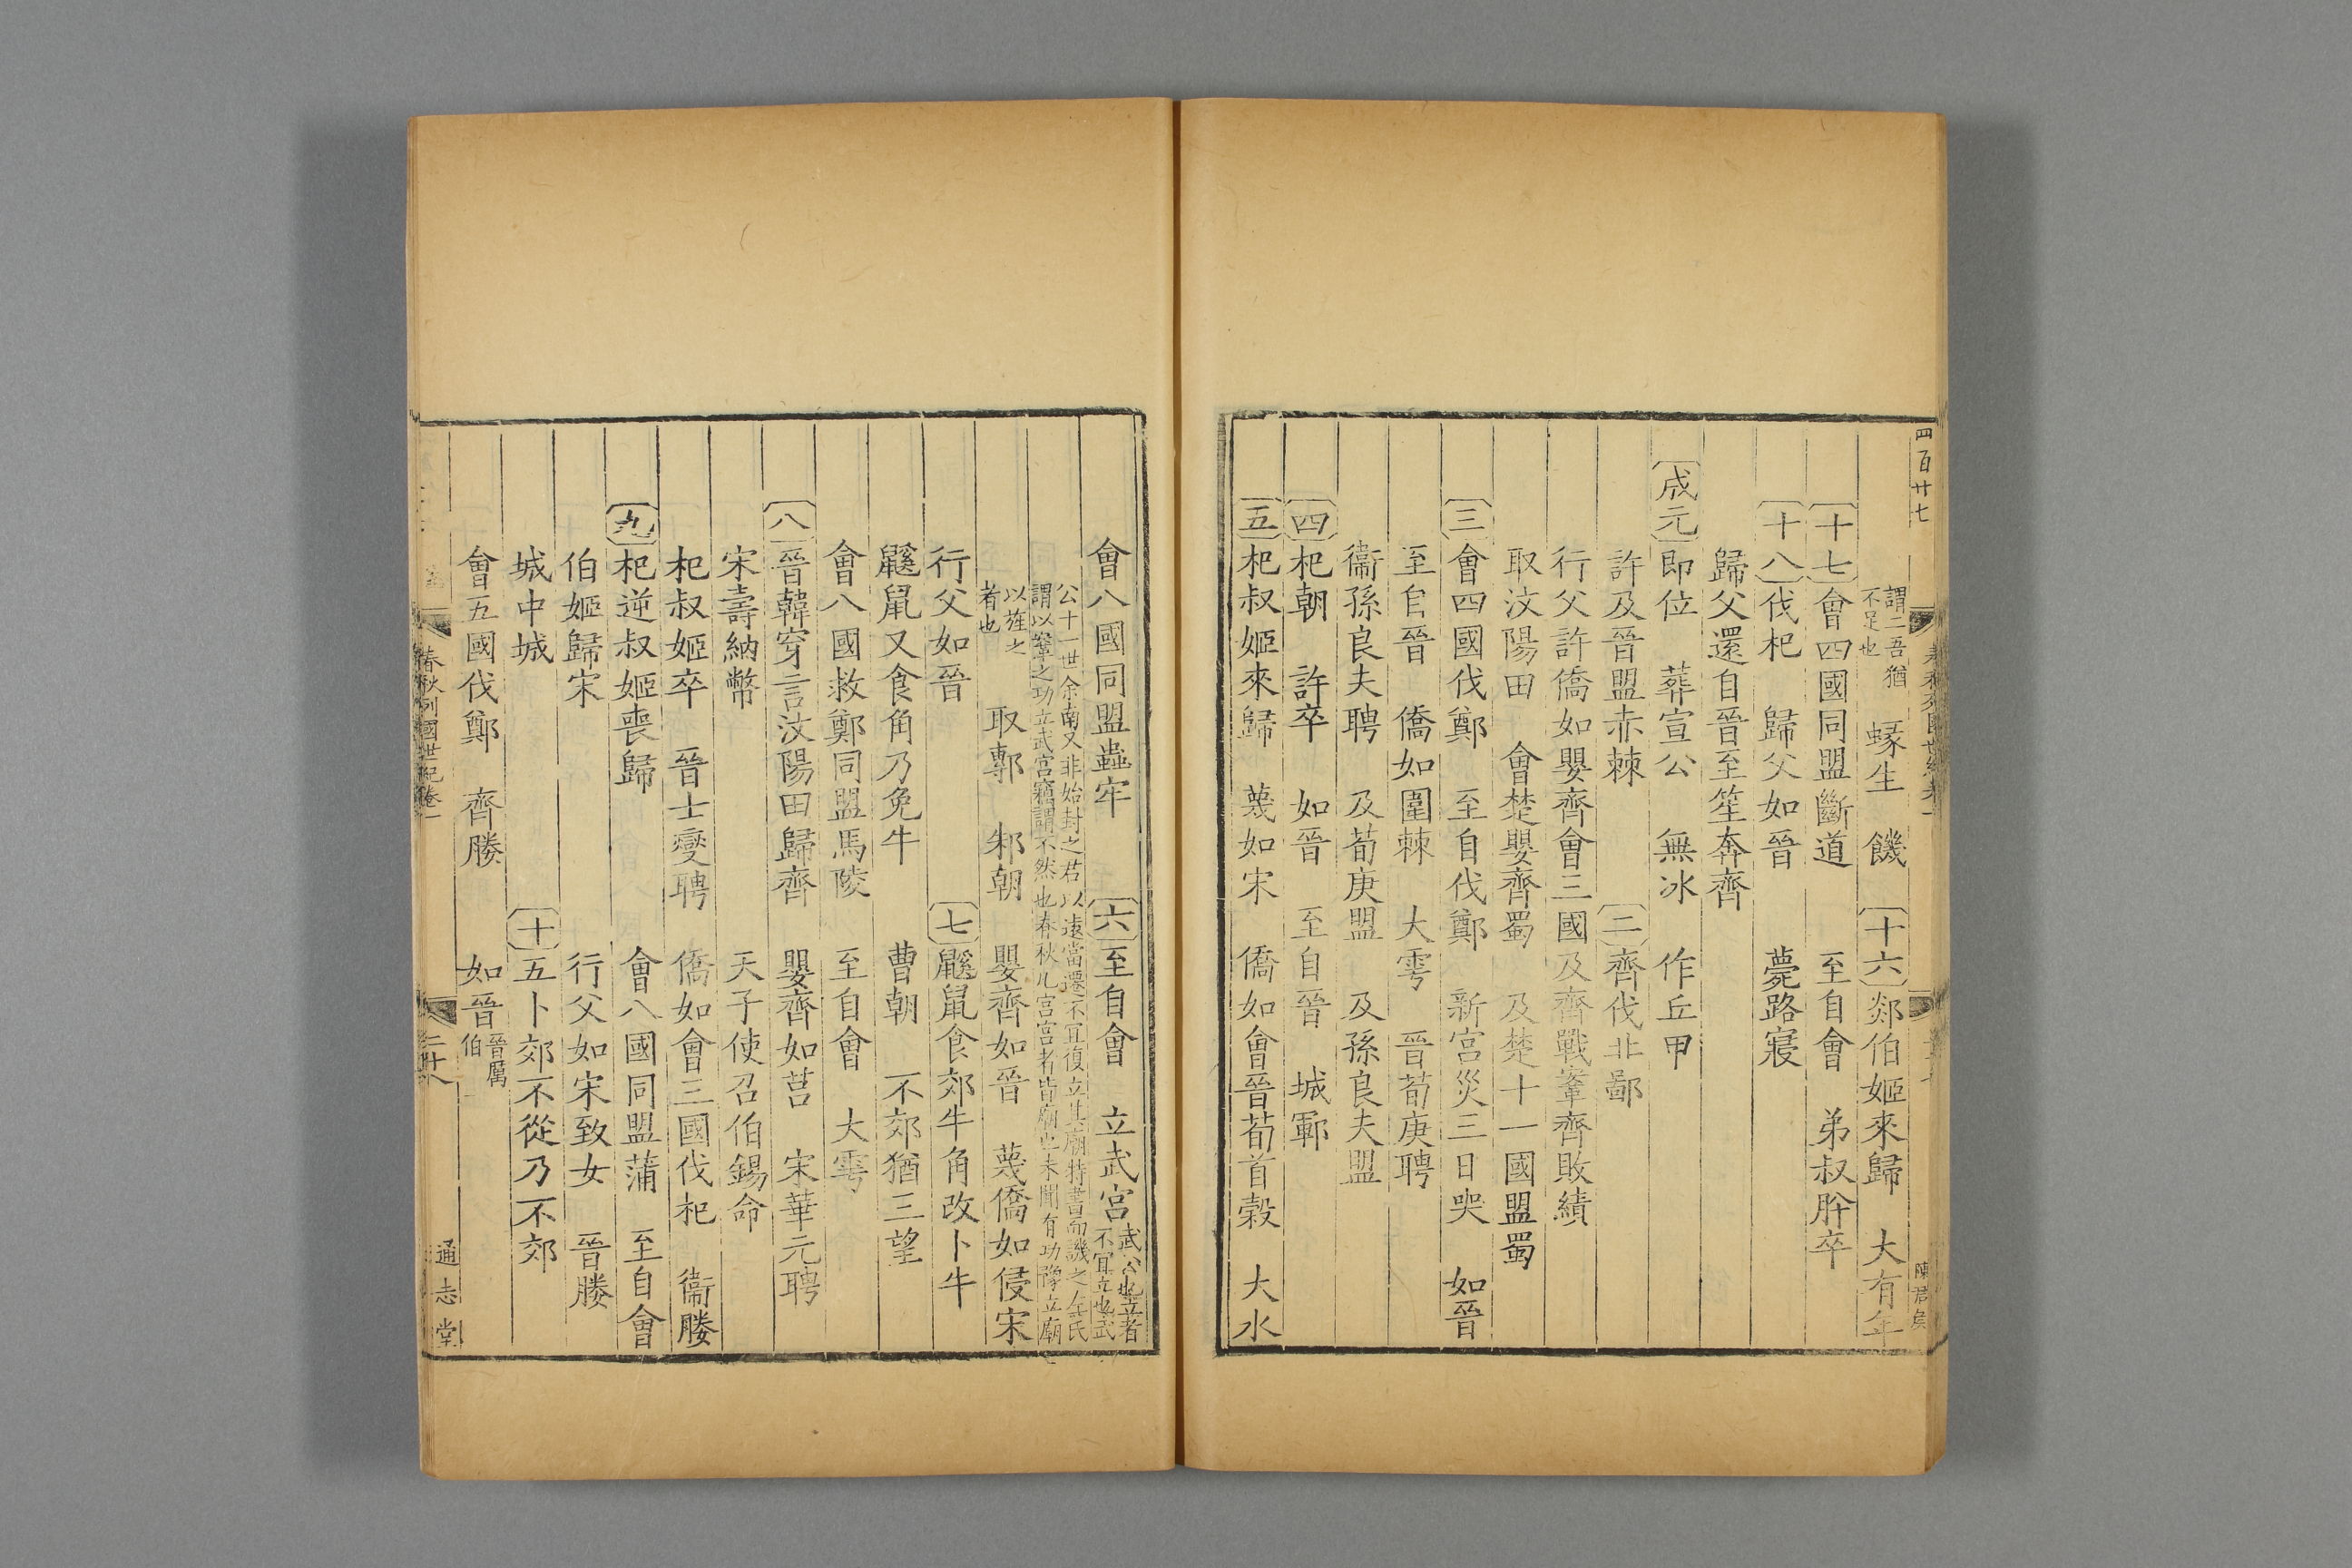 四百廿七
陳君矦
謂二吾猶不足也　蝝生　饑　十六　郯伯姬來歸　大有年
十七　會四國同盟斷道　至自會　弟叔肸卒
十八　伐杞　歸父如晉　薨路寢
歸父還自晉至笙奔齊
成元　即位　葬宣公　無冰　作丘甲
許及晉盟赤棘　二　齊伐北鄙
行父許僑如嬰齊會三國及齊戰鞌齊敗績
取汶陽田　會楚嬰齊蜀　及楚十一國盟蜀
三　會四國伐鄭　至自伐鄭　新宮災三日哭　如晉
至自晉　僑如圍棘　大雩　晉荀庚聘
衞孫良夫聘　及荀庚盟　及孫良夫盟
四　杞朝　許卒　如晉　至自晉　城鄆
五　杞叔姬來歸　蔑如宋　僑如會晉荀首穀　大水
會八國同盟蟲牢　六　至自會　立武宮　武公也立者不冝立也武
公十一世余南又非始封之君以遠當遷不冝復立其廟特書而譏之左氏
謂以鞌之功立武宮竊謂不然也春秋凡宮宮者皆廟也未聞有功豫立廟
以旌之者也　取鄟　邾朝　嬰齊如晉　蔑僑如侵宋
行父如晉　七　鼷鼠食郊牛角改卜牛
鼷鼠又食角乃免牛　曹朝　不郊猶三望
會八國救鄭同盟馬陵　至自會　大雩
八　晉韓穿言汶陽田歸齊　嬰齊如莒　宋華元聘
宋壽納幣　天子使召伯錫命
杞叔姬卒　晉士燮聘　僑如會三國伐杞　衞媵
九　杞逆叔姬喪歸　會八國同盟蒲　至自會
伯姬歸宋　行父如宋致女　晉媵
城中城　十　五卜郊不從乃不郊
會五國伐鄭　齊媵　如晉　晉厲伯
春秋列國世紀卷一　二十八　通志堂